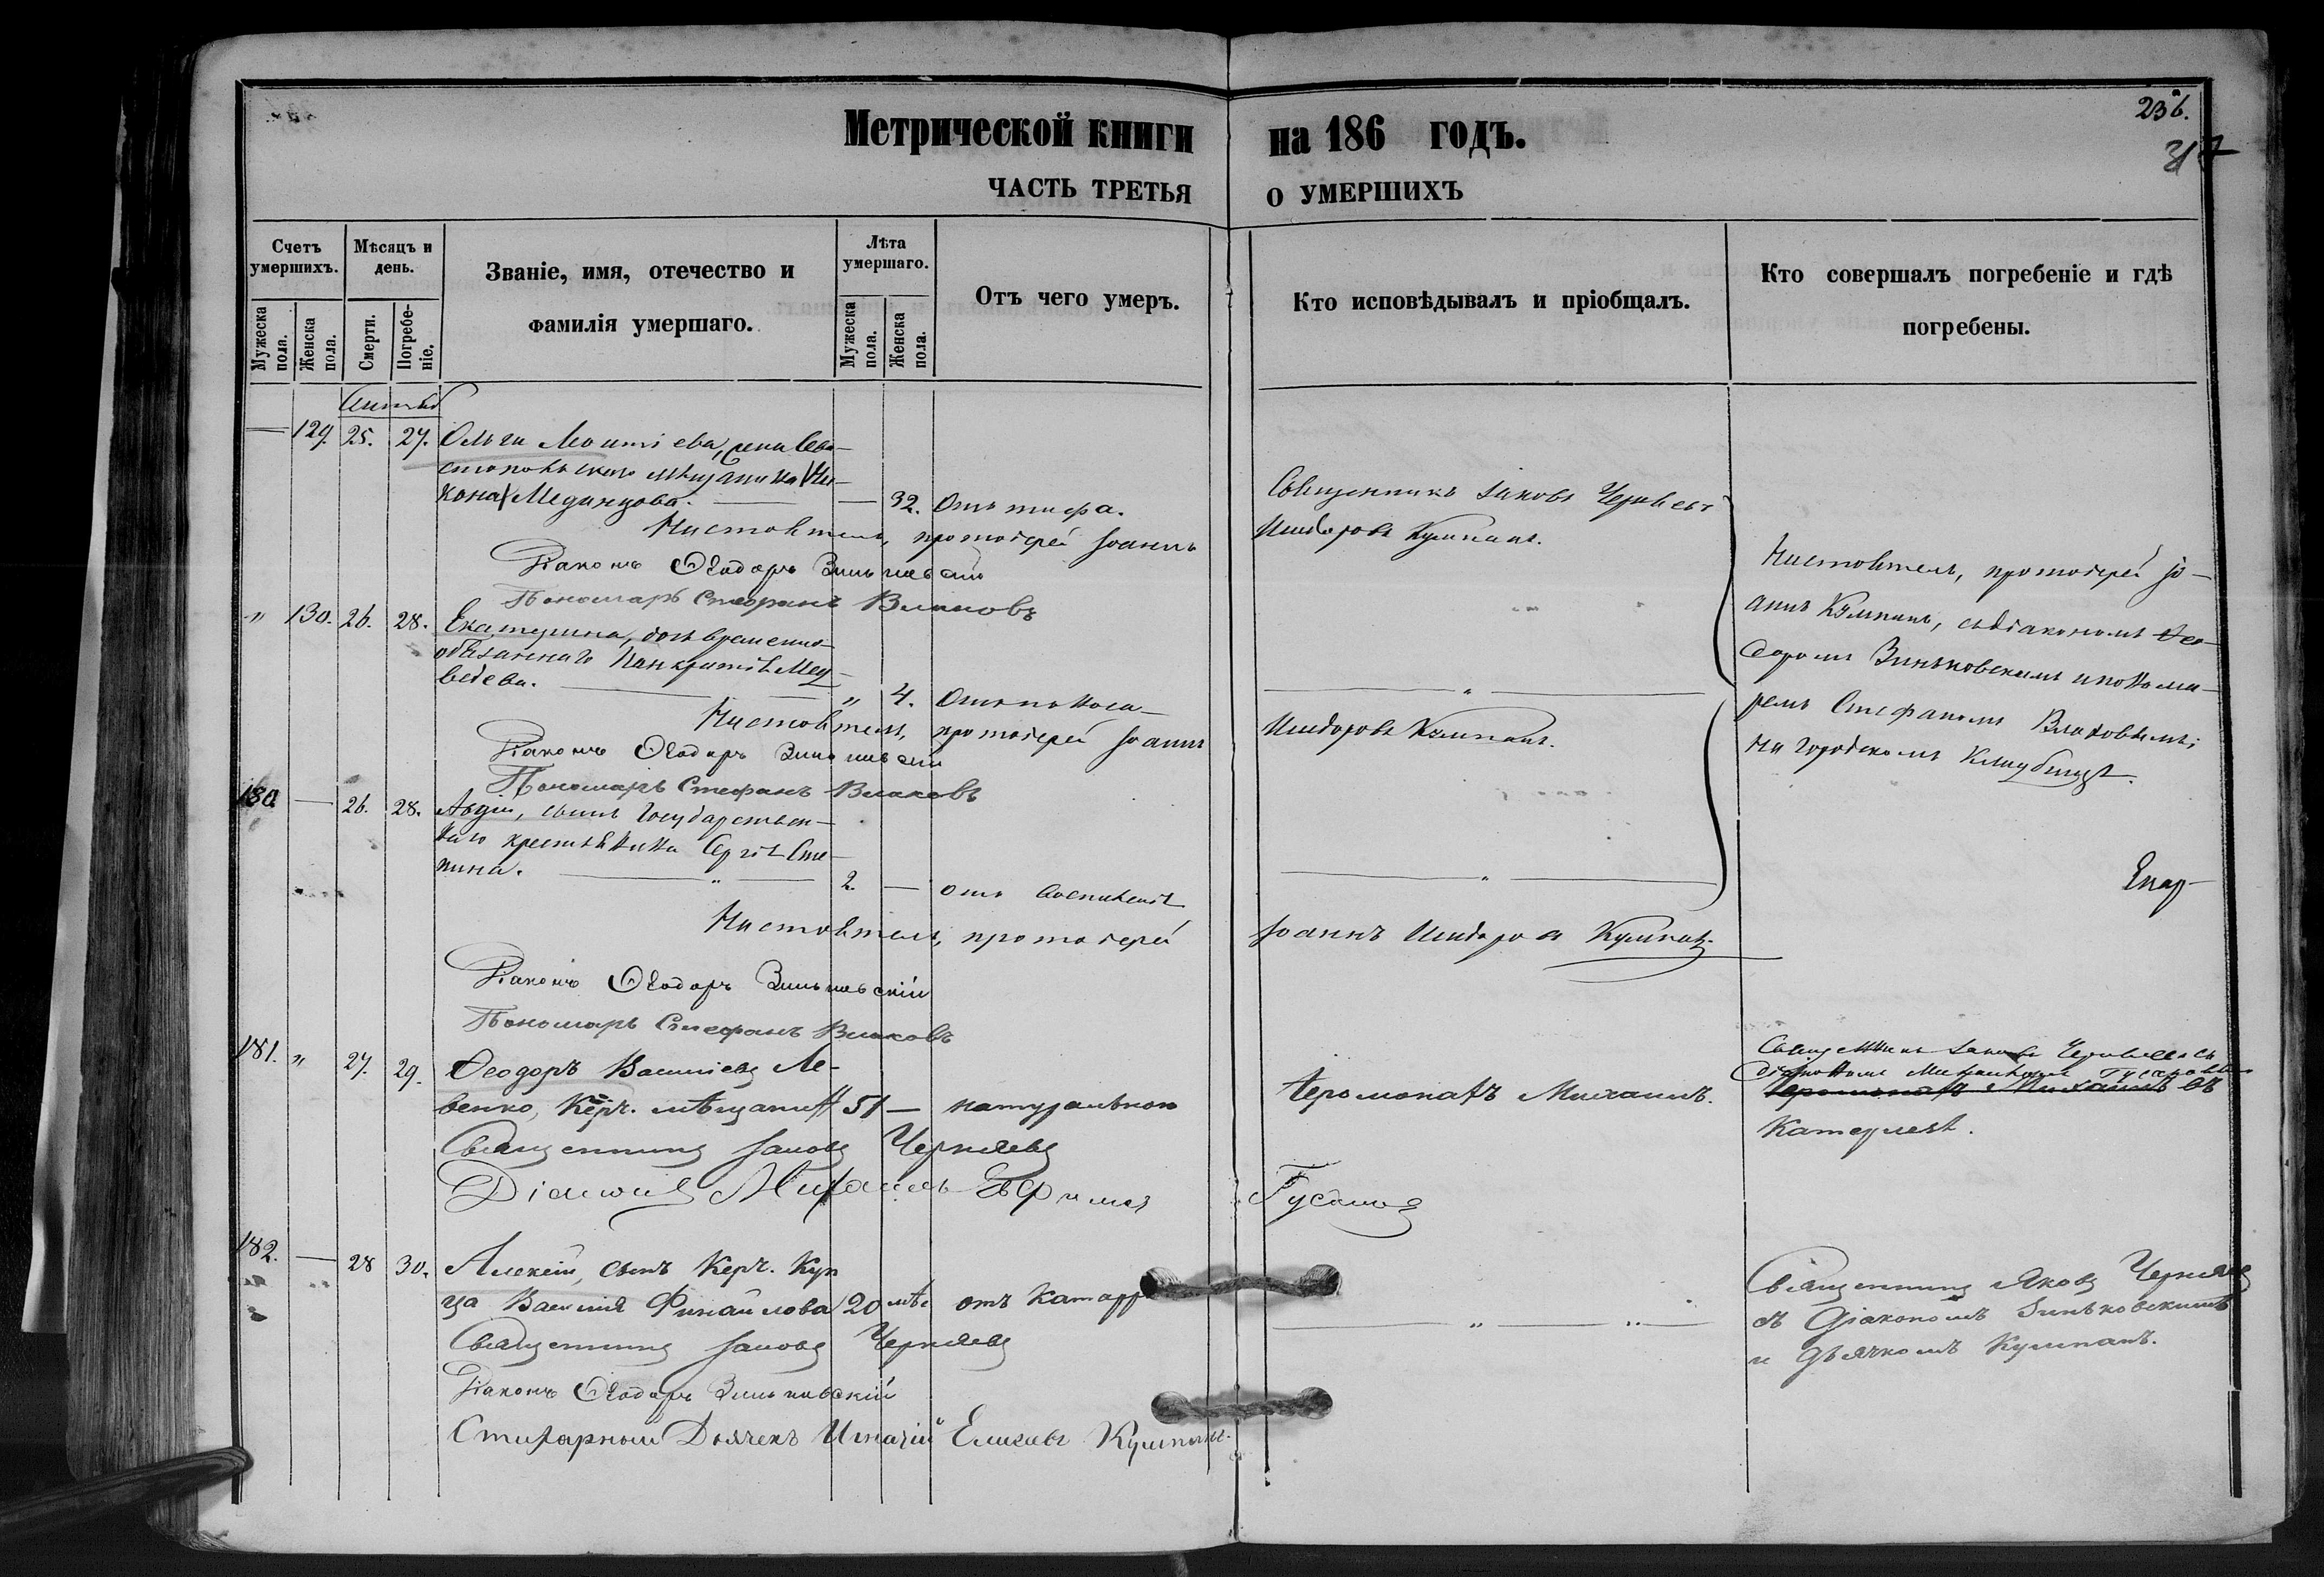 236.
317
Метрической книги на 186 годъ.
ЧАСТЬ ТРЕТЬЯ О УМЕРШИХЪ
Счетъ умершихъ.
Мужеска пола.
Женска пола.
Мѣсяцъ и день.
Смерти.
Погребеніе.
Званіе, имя, отечество и фамилія умершаго.
Лѣта умершаго.
Мужеска пола.
Женска пола.
Отъ чего умеръ.
Кто исповѣдывалъ и пріобщалъ.
Кто совершалъ погребеніе и гдѣ погребены.
— 129. 25. 27. Ольга Леонтіева, жена Сева-
стопольскаго мѣщанина
Мединцова. — — 32. Отъ тифа.
Священникъ Іаковъ Черняевъ
Настоятель, протоіерей Іоаннъ Исидоровъ Кумпанъ.
Діаконъ Ѳеодоръ Зиньковскій
Пономарь Стефанъ Влаковъ
Настоятель, протоіерей Іо-
аннъ Кумпанъ, съ діакономъ Ѳео-
доромъ Зиньковскимъ и понома-
ремъ Стефаномъ Влаковымъ;
на городскомъ кладбищѣ.
„ 130. 26. 28. Екатерина, дочь временно-
обязаннаго Панкратія Мед-
ведева. — „ 4. Отъ поноса — „ —
Настоятель, протоіерей Іоаннъ Исидоровъ Кумпанъ.
Діаконъ Ѳеодоръ Зиньковскій
Пономарь Стефанъ Влаковъ
180 — 26. 28. Авдій, сынъ Государствен-
наго крестьянина Сергія Сте-
пина. — „ — 2. — отъ воспаленія — „ —
Настоятель, протоіерей Іоаннъ Исидоровъ Кумпанъ.
Діаконъ Ѳеодоръ Зиньковскій
Пономарь Стефанъ Влаковъ
181. „ 27. 29. Ѳеодоръ Василіевъ Ле-
венко, Керч. мѣщанинъ 51 — натурально Іеромонахъ Михаилъ.
Священникъ Іаковъ Черняевъ съ
діакономъ Михаиломъ Гусаковымъ
Іеромонахъ Михаилъ въ
Катерлезѣ.
Священникъ Іаковъ Черняевъ
Діаконъ Михаилъ Ефимовъ Гусаковъ
182. — 28 30. Алексій, сынъ Керч. Куп
ца Василія 20 мѣс отъ Катарр — „ — „ —
Священникъ Яковъ Черняевъ
съ діакономъ Зиньковскимъ
и дьячкомъ Кумпанъ.
Священникъ Іаковъ Черняевъ
Діаконъ Ѳеодоръ Зиньковскій
Стихарный Дьячекъ Игнатій Кумпанъ.